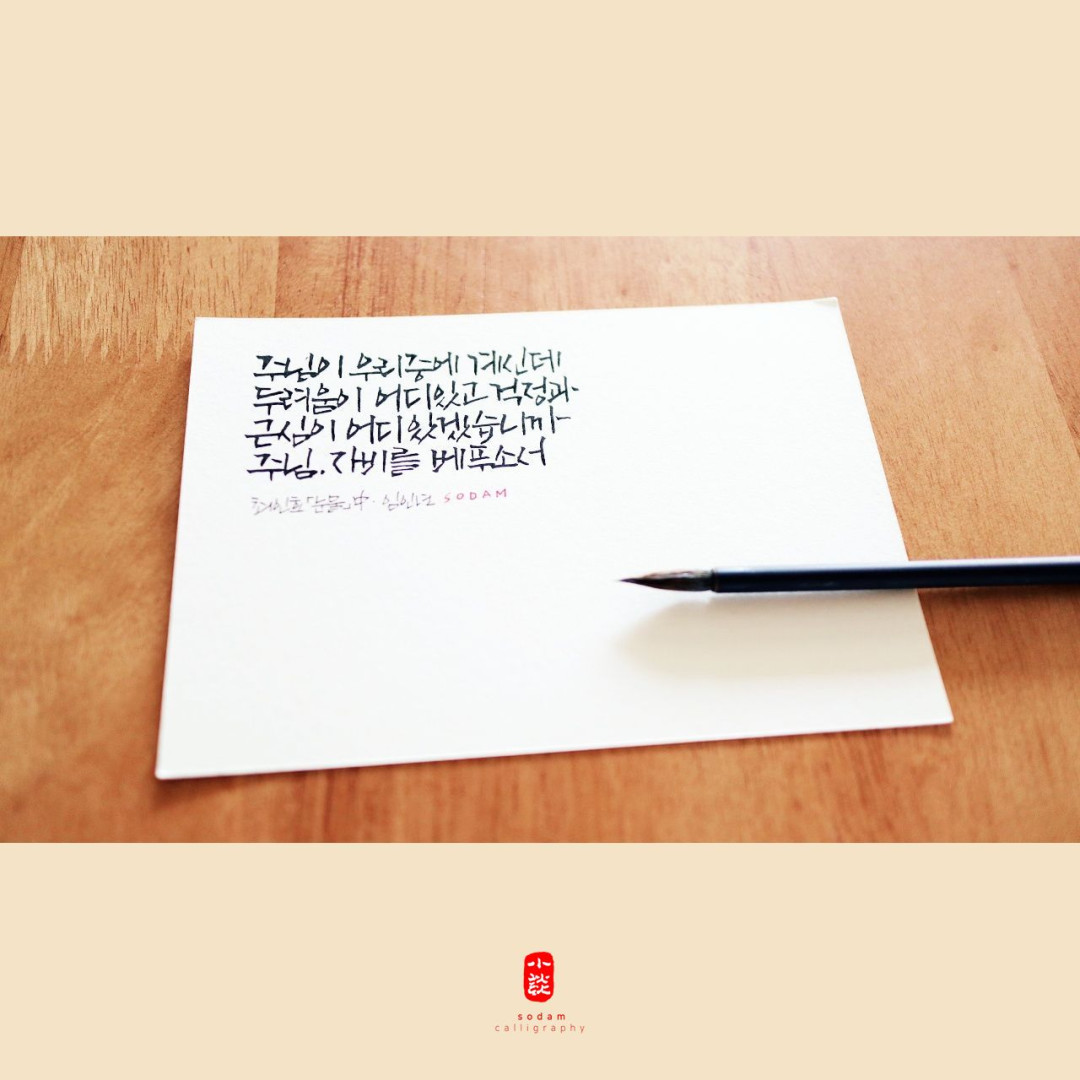 주님이 우리중에 계신데
두려움이 어디있고 걱정과
근심이 어디 있겠습니까
주님. 자비를 베푸소서
최인호「눈물」中. 임인년 SODAM
小談
sodam
calligraphy